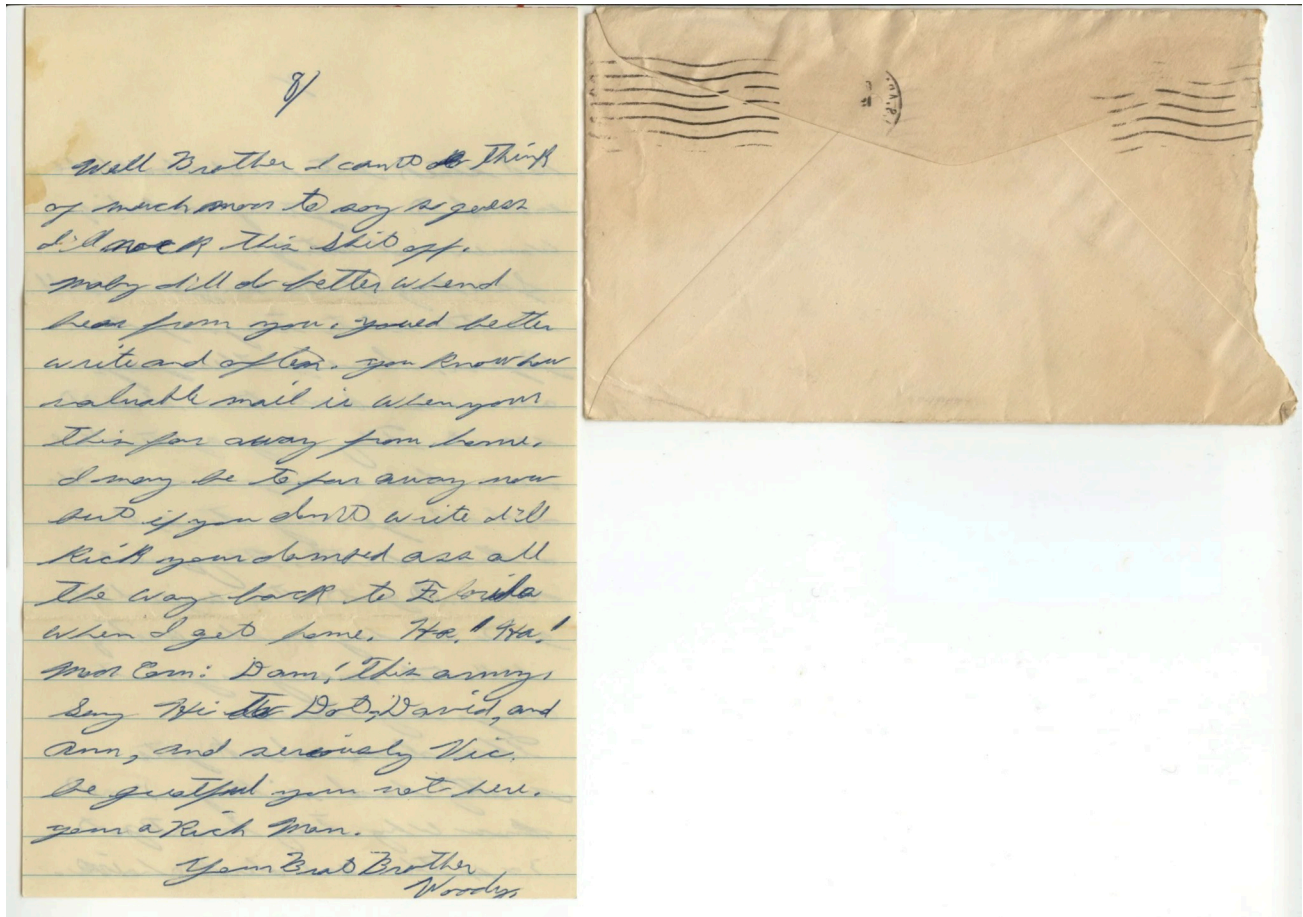 8/
Well Brother I cant do think
of much more to say so guess
I'll nock this shit off.
Maby I'll do better when I
hear from you. youd better
write and often. you know how
valuable mail is when your
this far away from home.
I may be to far away now
but if you don't write I'll
Kick your damned ass all
the way back to Florida
when I get home. Ha! Ha!
Dam! this army.
Say Hi to Dot, David, and
Ann, and seriously Vic.
be greatful your not here.
your a Rich Man.
Your Brat Brother
Woody.